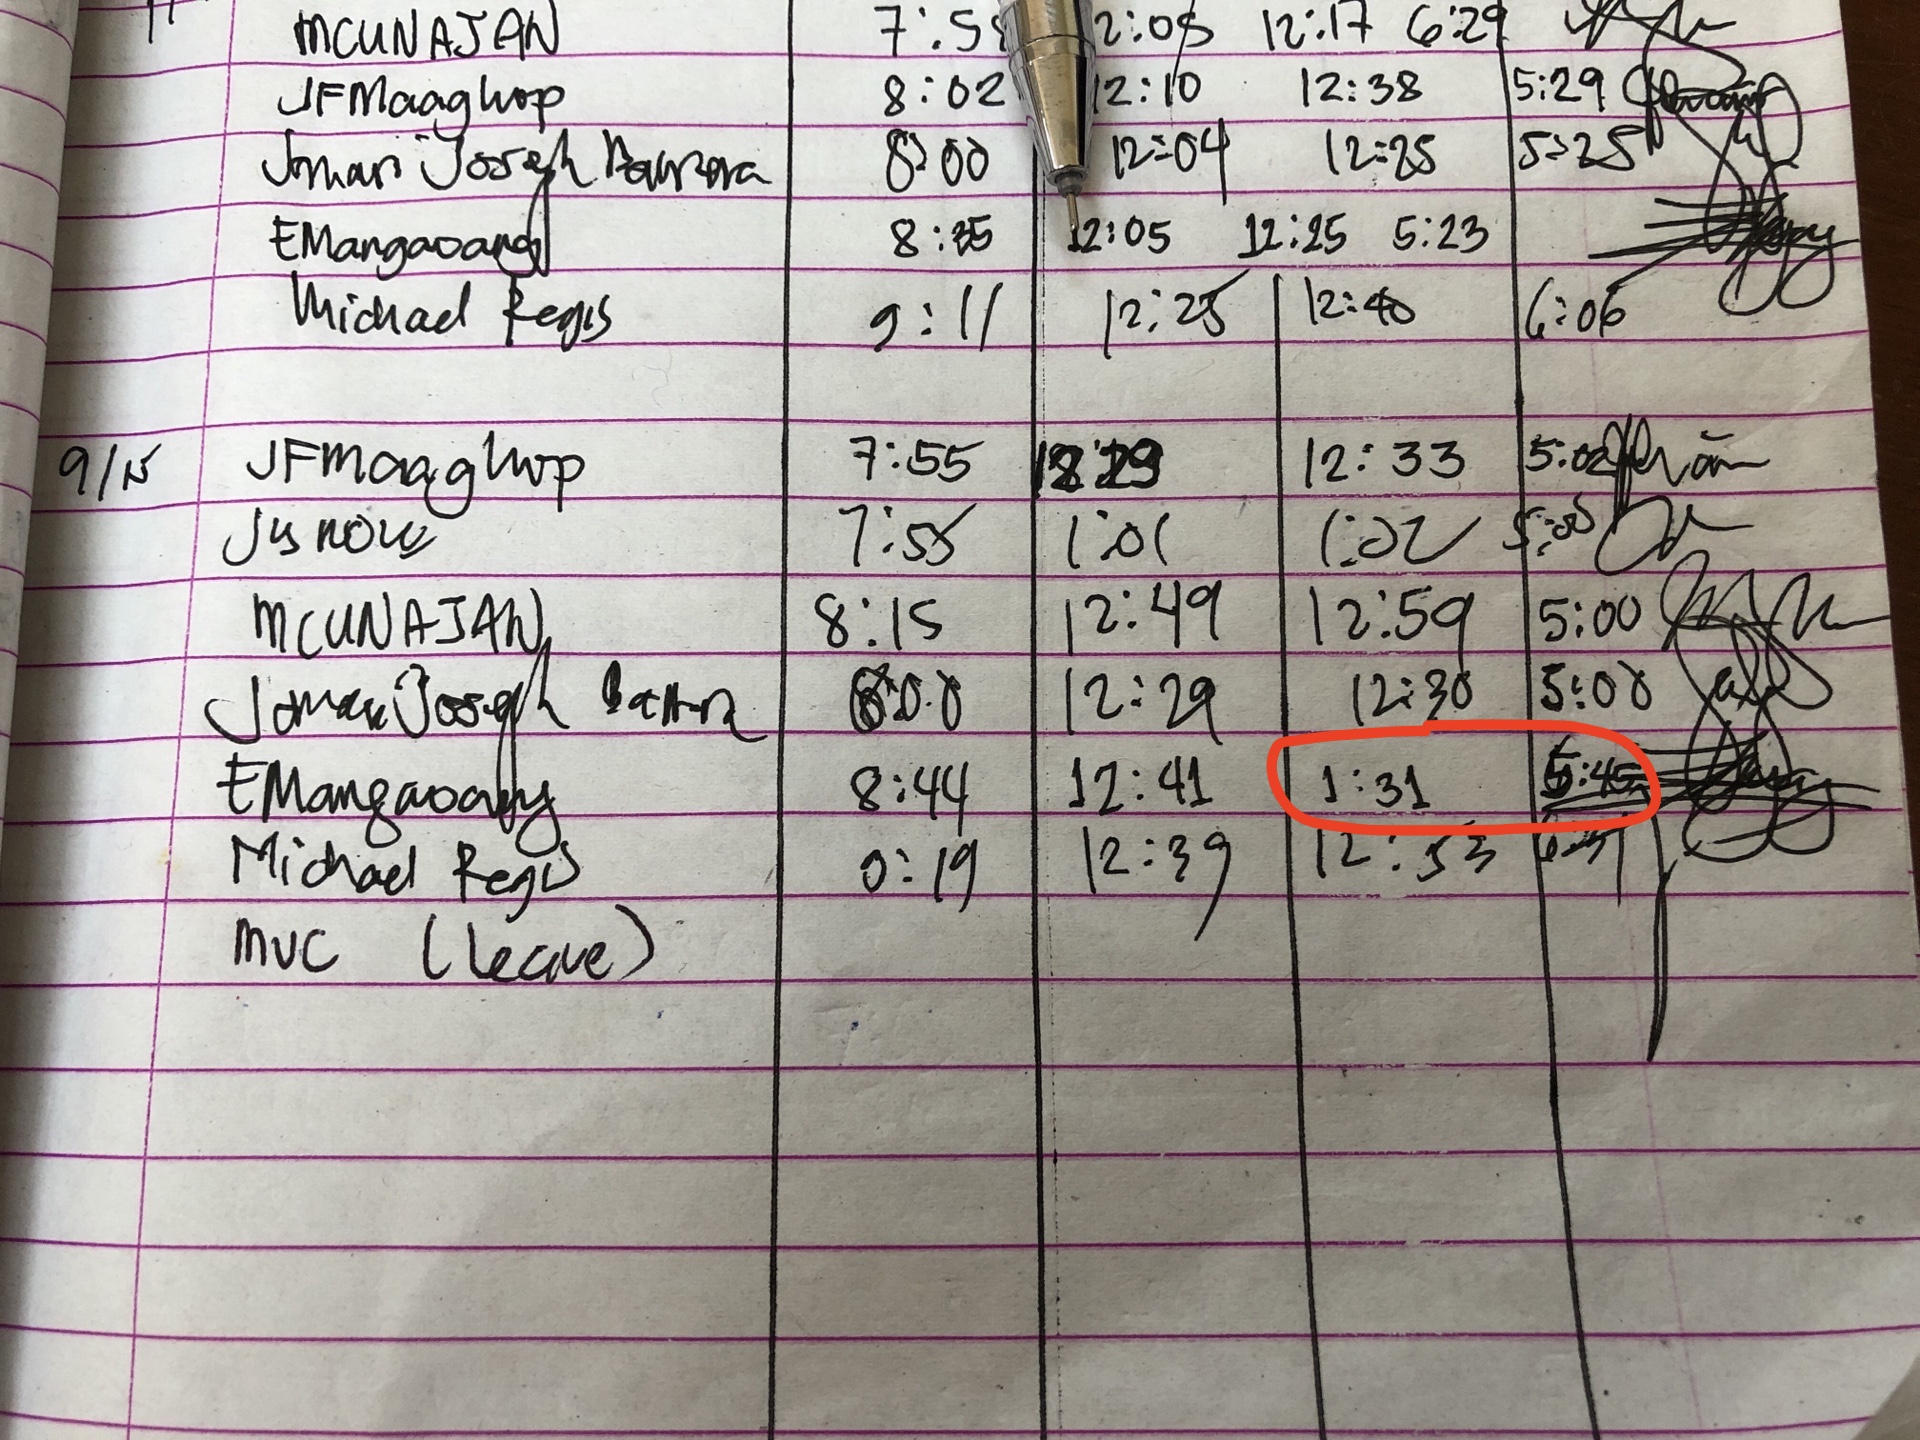 MCUNAJAN 7:5 2:05 12:17 6:29
JFMaaghop 8:02 12:10 12:38 5:29
Joseph 8:00 12:04 12:25 5:25
EMangaoang 8:35 12:05 12:25 5:23
Michael Regis 9:11 12:25 12:40 6:06
9/15 JFMaaghop 7:55 12:33 5:02
7:55 1:01 1:02
MCUNAJAN 8:15 12:49 12:59 5:00
Joseph 12:29 12:30 5:00
EMangaoang 8:44 12:41 1:31 5:45
Michael Regis 9:19 12:39 12:53
MVC (leave)